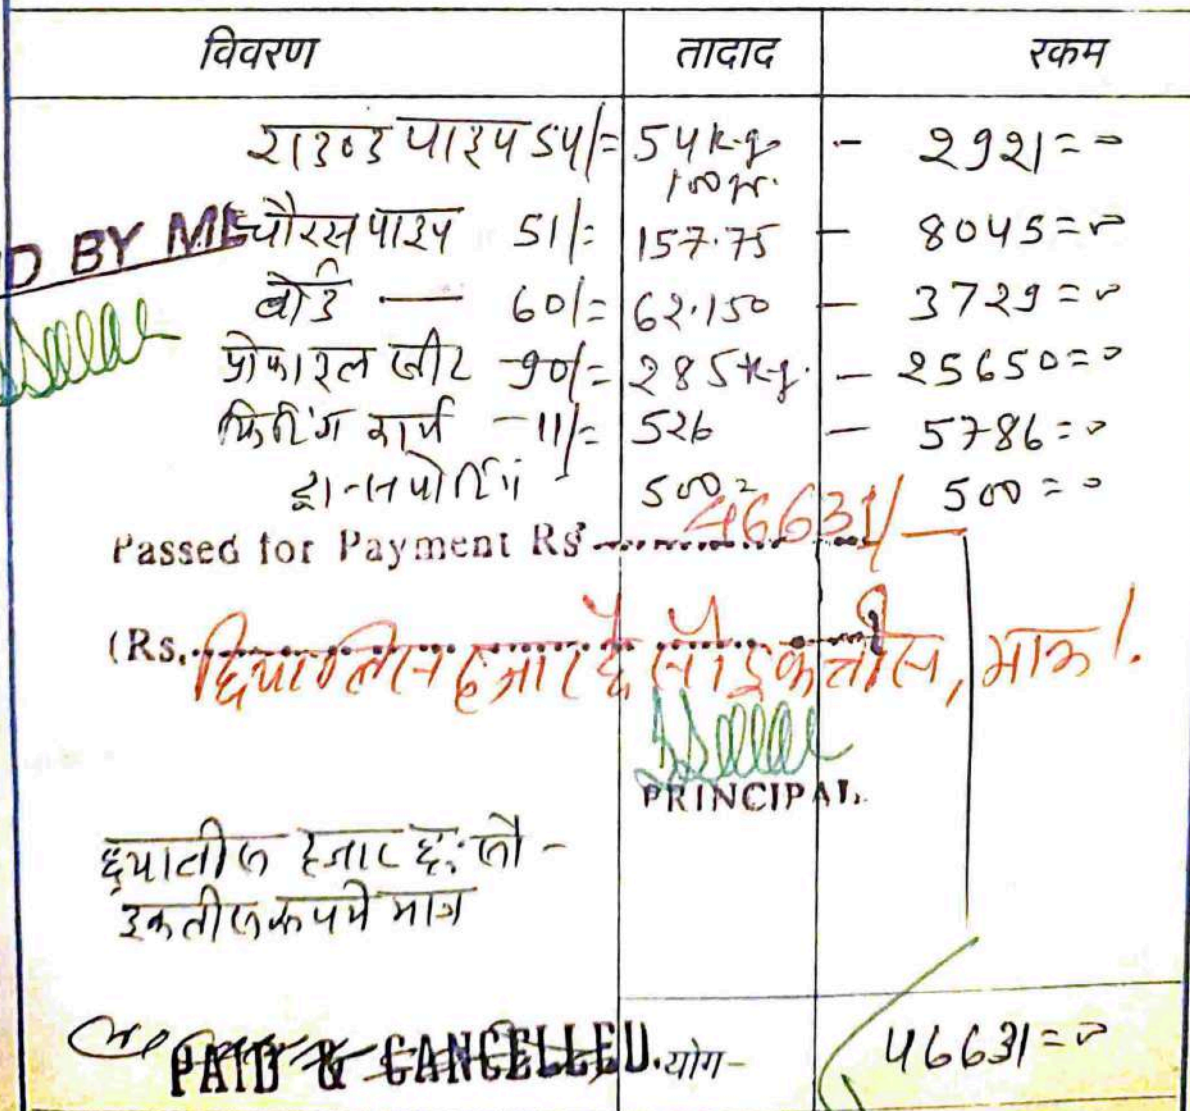 विवरण तादाद रकम
राउण्ड पाइप 54/= 54 kg. - 2921=00
100 gr.
D BY ME चौरस पाइप 51/= 157.75 - 8045=00
बोर्ड — 60/= 62.150 - 3729=00
प्रोफाइल सीट 90/= 285 kg. - 25650=00
फिटिंग चार्ज - 11/= 526 - 5786=00
ट्रान्सपोर्टिंग 500= 500=00
Passed for Payment Rs 46631/-
(Rs. छियालिस हजार छै सौ इकतीस, मात्र।
PRINCIPAL.
छयालीस हजार छ: सौ -
इकतीस रूपये मात्र
PAID & CANCELLED. योग- 46631=00